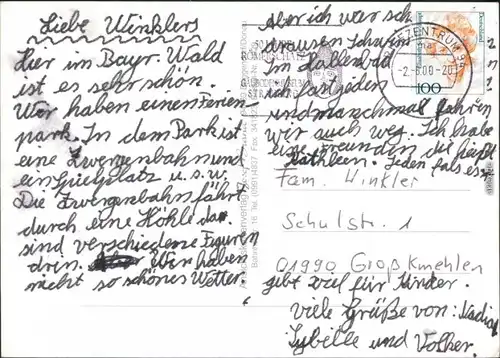 Liebe Winklers
Hier im Bayr. Wald
ist es sehr schön.
Wir haben einen Ferien
park. In dem Park ist
eine Zwergenbahn und
ein Spielplatz u.s.w.
Die Zwergenbahn fährt
durch eine Höhle da.
sind verschiedene Figuren
drin. Wir haben
nicht so schönes Wetter.
Aber ich war sch
drausen Schwim
im Hallenbad
ich fast jeden
und manschmal fahren
wir auch weg. Ich habe
eine Freundin die heißt
Kathleen. Jeden fals es
gibt viel für Kinder.
viele Grüße von: Nadja
Sybelle und Volker.
Fam. Winkler
Schulstr. 1
01990 Großkmehlen
EZENTRUM 94
-2.-6.00-20
100
Deutschland